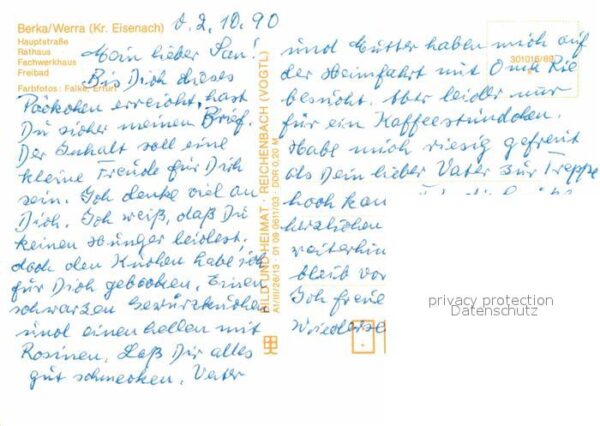 Berka/Werra (Kr. Eisenach)
Hauptstraße
Rathaus
Fachwerkhaus
Freibad
Farbfotos: Falke, Erfurt
d. 2. 10. 90
Mein lieber Jan!
Bis Dich dieses
Päckchen erreicht, hast
Du sicher meinen Brief.
Der Inhalt soll eine
kleine Freude für Dich
sein. Ich denke viel an
Dich. Ich weiß, daß Du
keinen Hunger leidest,
doch den Kuchen habe ich
für Dich gebacken. Einen
schwarzen Gewürzkuchen
und einen hellen mit
Rosinen. Laß Dir alles
gut schmecken. Vater
BILD UND HEIMAT · REICHENBACH (VOGTL)
A1/III/26/13 · 01 09 0611/03 · DDR 0,20 M
301016/89
und Mutter haben mich auf
der Heimfahrt mit Omk
besucht. Aber leider nur
für ein Kaffeestündchen.
Habe mich riesig gefreut
als Dein lieber Vater zur Treppe
hoch kam
herzlichen
weiterhin
bleib
Ich freue
privacy protection
Datenschutz